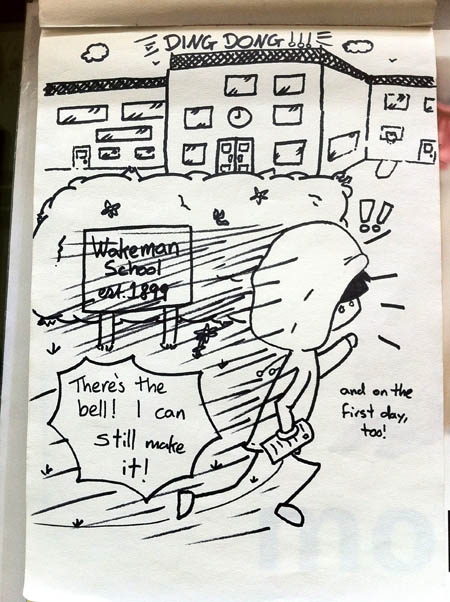 DING DONG!!!
!!
Wakeman
School
est. 1899
There's the
bell! I can
still make
it!
and on the
first day,
too!